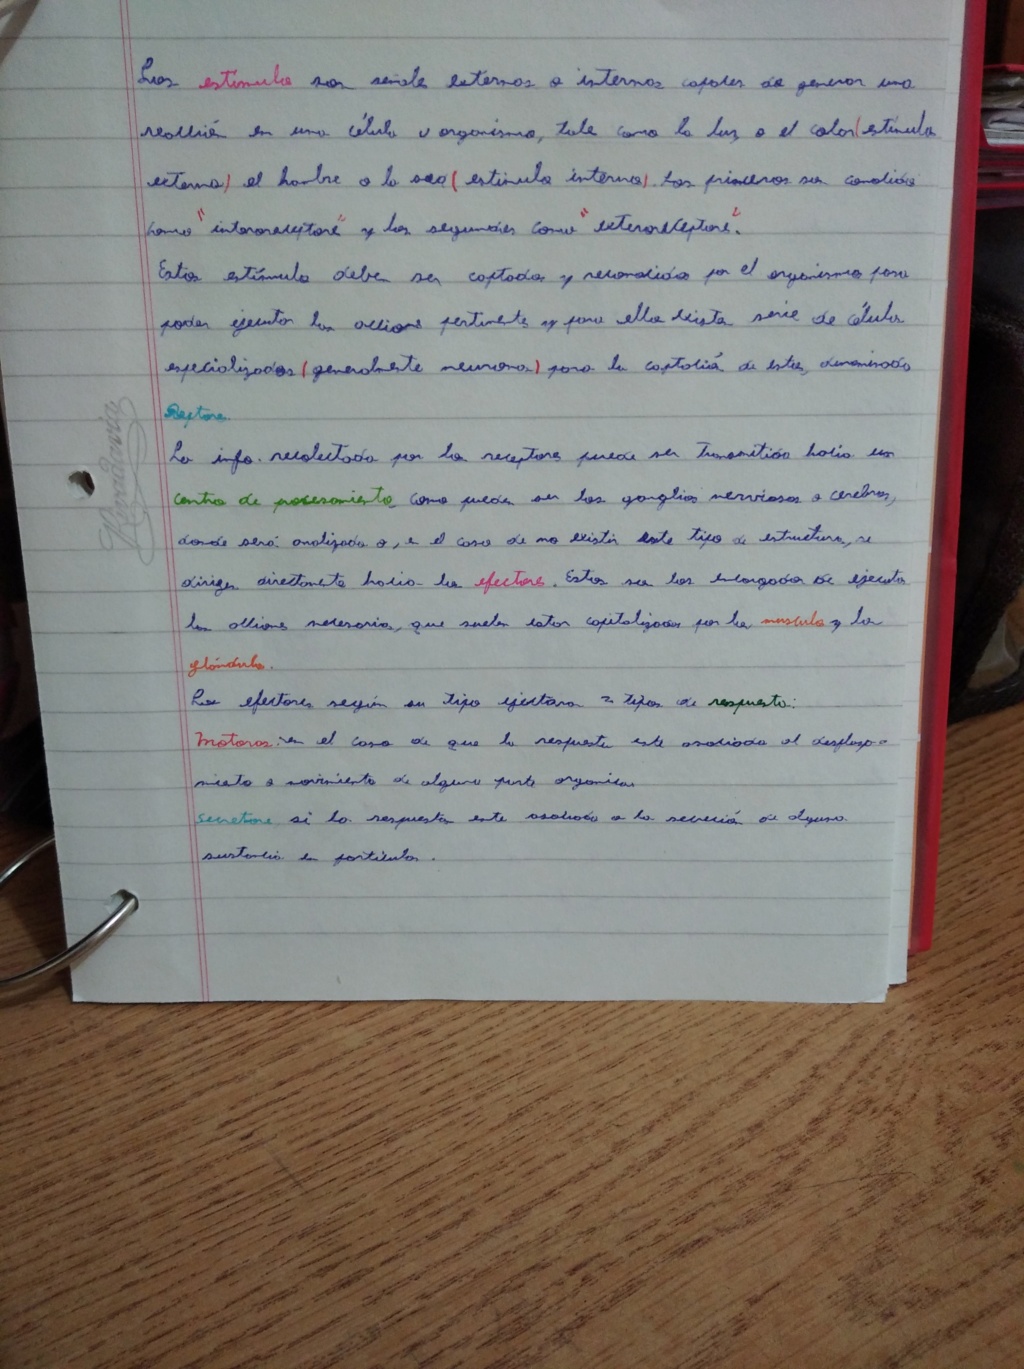 Los estimulo son señale externos o internos capaces de generar una
reacción en una célula u organismo, tale como la luz, o el calor (estimulo
externo) el hambre o la sed (estimulo interno). Los primeros son conocidos
como "interoreceptore" y los segundos como "exteroreceptore".
Estos estímulo deben ser captados y reconocido por el organismo para
poder ejecutar las accione pertinente y para ello existe serie de célula
especializadas (generalmente neurona) para la captación de estos, denominado
Receptore.
La info. recolectada por los receptores puede ser transmitida hacia un
centro de procesamiento, como pueden ser los ganglios nerviosos o cerebros,
donde será analizada o, e el caso de no existir este tipo de estructura, se
dirige directamente hacia los efectore. Estos son los encargados de ejecuta
las accione necesaria, que suelen estar por los musculo y la
glándula.
Los efectores según su tipo 2 tipos de respuesta:
Motoras: en el caso de que la respuesta este asociada al desplaza-
miento o movimiento de alguna parte organica.
Secretore si la respuesta este asociado a la secreción de alguna
sustancia en particular.
Rivadavia